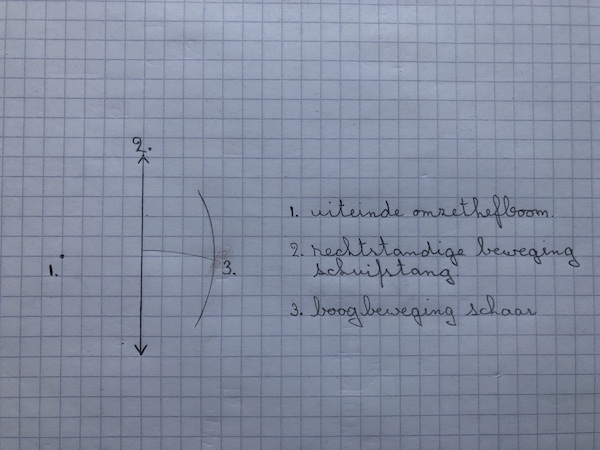 2.
1.
3.
1. uiteinde omzethefboom.
2. rechtstandige beweging
schuifstang.
3. boogbeweging schaar